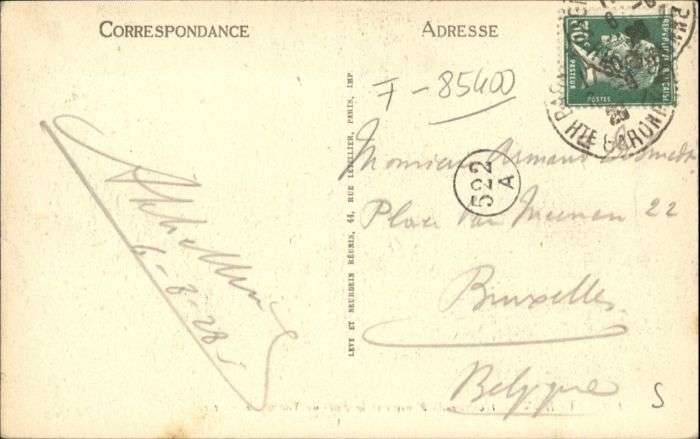 CORRESPONDANCE
ADRESSE
7-85400
RÉPUBLIQUE FRANÇAISE
PASTEUR
POSTES
522
A
Monsieur Armand
Place Van Meenen 22
Bruxelles
Belgique
6-8-28
S
LEVY ET NEURDEIN RÉUNIS, 44, RUE LETELLIER, PARIS, IMP.